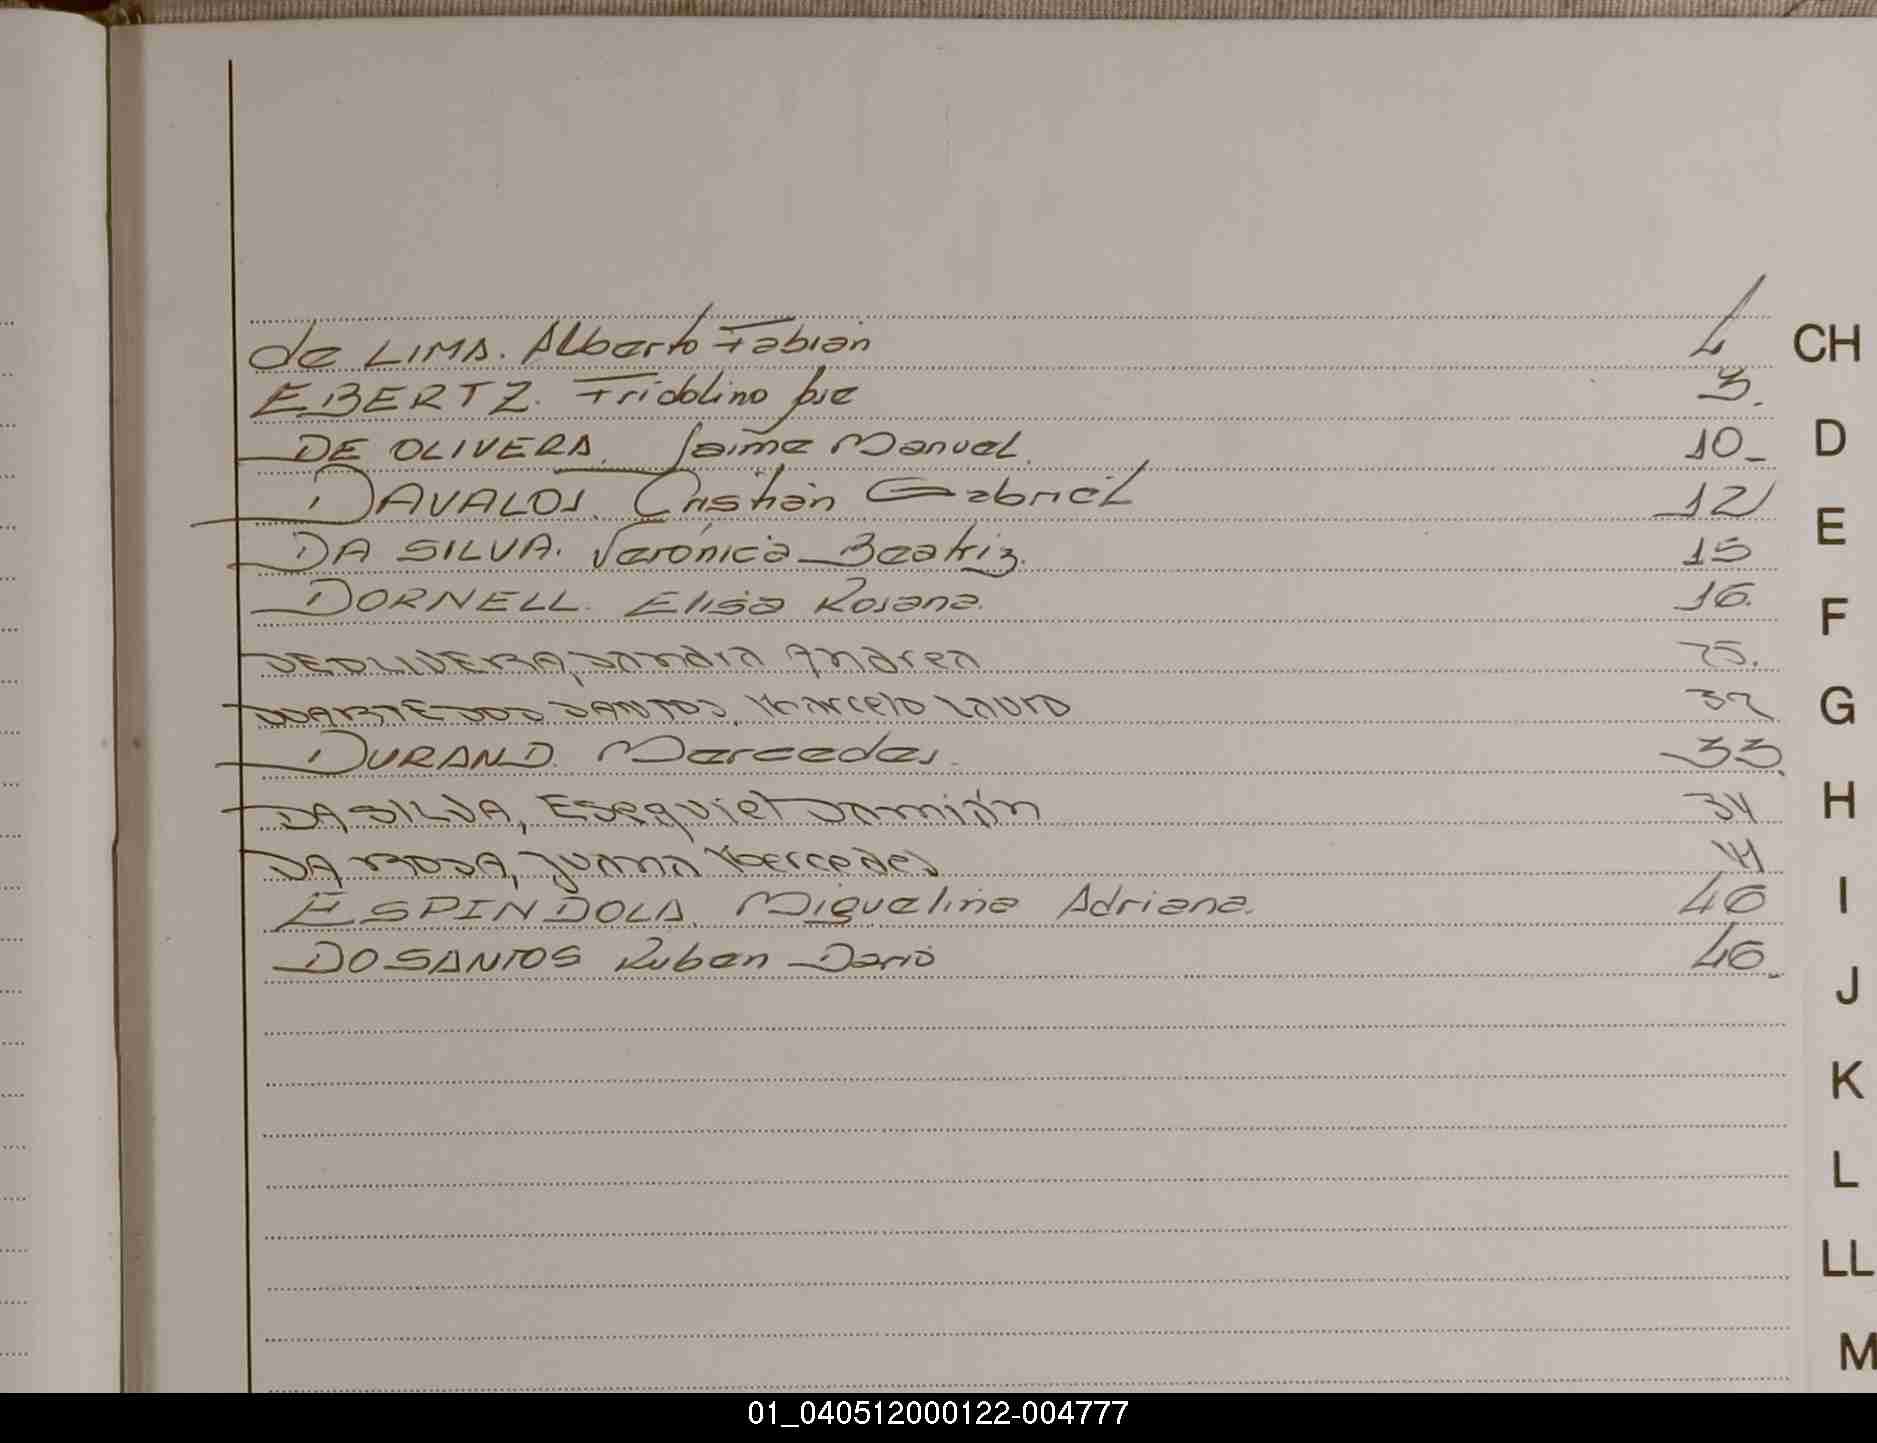 de LIMA. Alberto Fabián 1 CH
EBERTZ. Fridolino José 3.
DE OLIVERA. Jaime Manuel. 10_ D
DAVALOS. Cristián Gabriel 12
E
DA SILVA. Verónica Beatriz. 15
DORNELL. Elisa Rosana. 16.
F
DEOLIVERA, Sandra Andrea 25.
DUARTE DOS SANTOS, Marcelo Lauro 32 G
DURAND. Mercedes. 33
DA SILVA, Esequiel Damián 34 H
DA ROSA, Juana Mercedes
ESPINDOLA. Miguelina Adriana. 40 I
DOSANTOS Ruben Dario 46.
J
K
L
LL
M
01_040512000122-004777